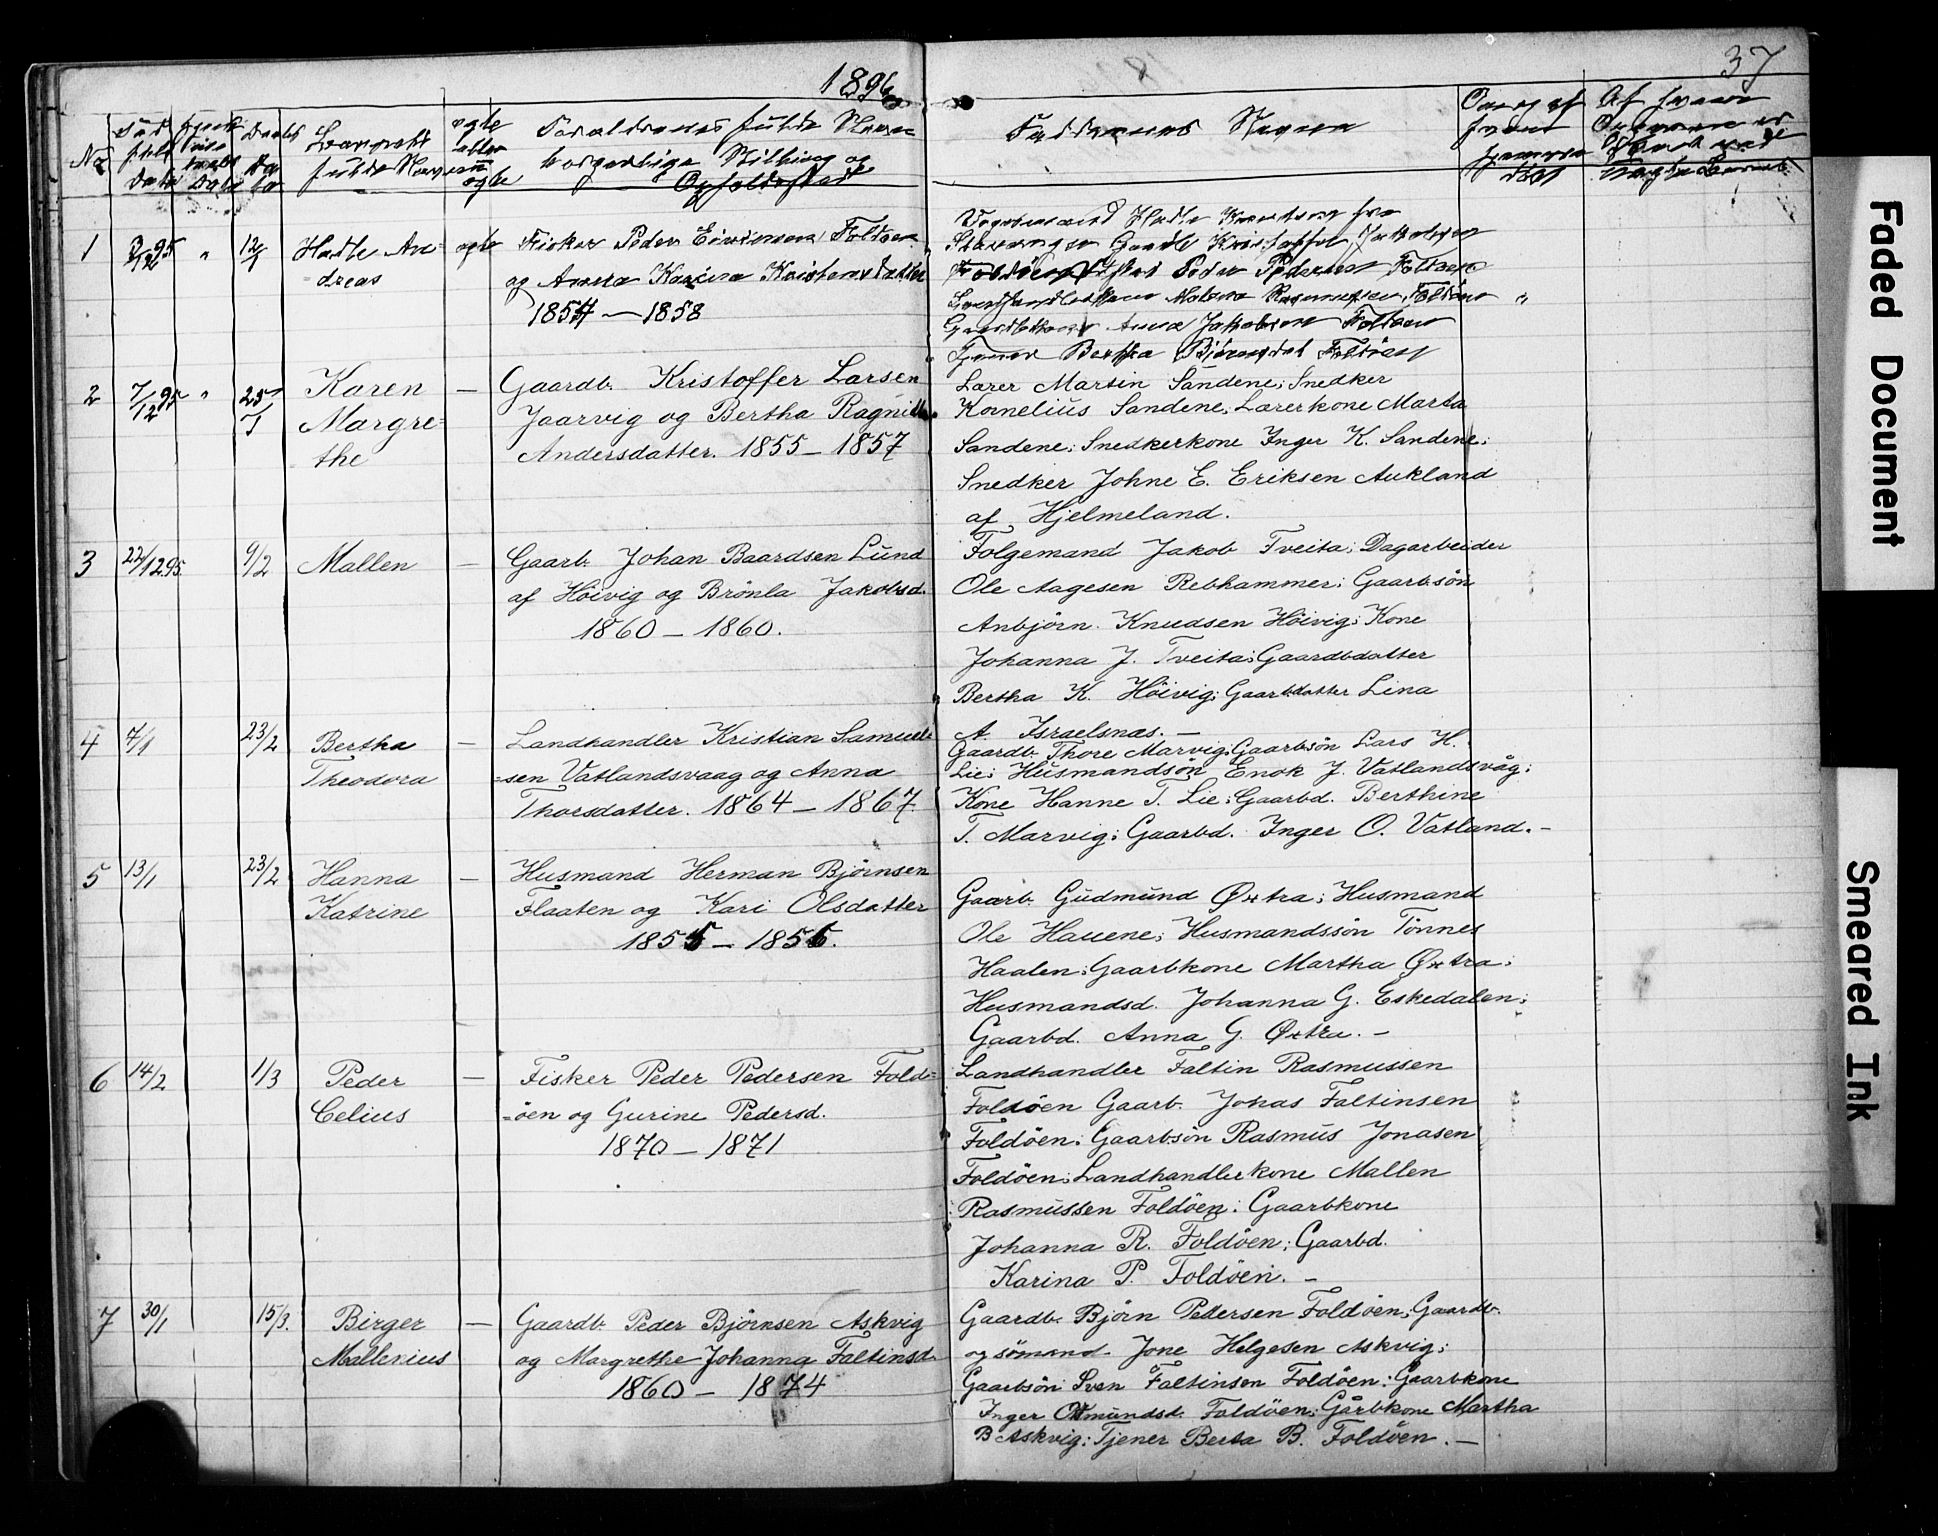 1896
37
No
Fød
sels
Dato
Daabs
Da
to
Barnets
fulde Navn
ægte
eller
uægte
Forældrenes fulde Navn
borgerlige Stilling og
Opholdssted
Faddernes Navne
1
2/12 95
"
12/1
Hadle An=
dreas
ægte
Fisker Peder Eivinsen Foldøen
og Anna Karina Kristensdatter
1854 — 1858
Stavanger Gaardb Kristoffer Jakobsen
Foldøen Fisker Peder Pedersen Foldøen
Landhandlerkone Malena Rasmussen, Foldøen "
Gaardbkone Anna Jakobsen Foldøen
Tjener Bertha Bjørnsdat Foldøen
2
7/12 95
"
25/1
Karen
Margre=
the
—
Gaardb. Kristoffer Larsen
Jaarvig og Bertha Ragnilde
Andersdatter. 1855 — 1857
Lærer Martin Sandene; Snedker
Kornelius Sandene; Lærerkone Marta
Sandene; Snedkerkone Inger K. Sandene;
Snedker Johne E. Eriksen Aukland
af Hjelmeland.
3
22/12 95
9/2
Mallen
—
Gaarb. Johan Baardsen Lund
af Höivig og Brönla Jakobsd.
1860 — 1860.
Folgemand Jakob Tveita; Dagarbeider
Ole Aagesen Rebhammer; Gaarbsön
Anbjörn Knudsen Höivig; Kone
Johanna J. Tveita; Gaardbdatter
Bertha K. Höivig; Gaarbdatter Lina
A. Israelsnæs. —
4
7/1
23/2
Bertha
Theodora
—
Landhandler Kristian Samuel=
=sen Vatlandsvaag og Anna
Thorsdatter. 1864 — 1867.
Gaardb. Thore Marvig; Gaarbsön Lars H.
Lie; Husmandsön Enok J. Vatlandsvåg;
Kone Hanne T. Lie; Gaarbd. Berthine
T. Marvig; Gaarbd. Inger O. Vatland. —
5
13/1
23/2
Hanna
Katrine
—
Husmand Herman Bjørnsen
Flaaten og Kari Olsdatter
1855 — 1856.
Gaarb. Gudmund Östra; Husmand
Ole Hauene; Husmandssön Tönnes
Haalen; Gaarbkone Martha Östra;
Husmandsd. Johanna G. Eskedalen;
Gaarbd. Anna G. Östra. —
6
14/2
1/3
Peder
Celius
—
Fisker Peder Pedersen Fold=
=öen og Gurine Pedersd.
1870 — 1871
Landhandler Faltin Rasmussen
Foldöen Gaarb. Johas Faltinsen
Foldöen; Gaarbsön Rasmus Jonasen
Foldöen; Landhandlerkone Mallen
Rasmussen Foldöen; Gaarbkone
Johanna R. Foldöen; Gaarbd.
Karina P. Foldöen. —
7
30/1
15/3.
Birger
Mallenius
—
Gaardb. Peder Bjørnsen Askvig
og Margrethe Johanna Faltinsd.
1860 — 1874
Gaardb. Bjørn Pedersen Foldöen; Gaardb.
og sömand Jone Helgesen Askvig;
Gaarbsön Sven Faltinsen Foldöen; Gaarbkone
Inger Odmundsd. Foldöen; Gårbkone Martha
B Askvig; Tjener Berta B. Foldöen. —
Faded Document
Smeared Ink